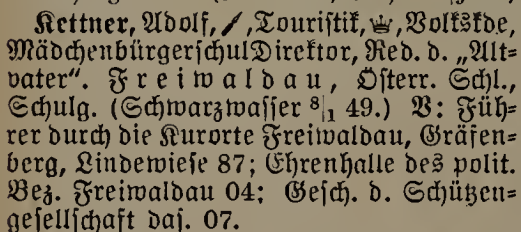 Kettner, Adolf, Touristik, Volkskde,
MädchenbürgerschulDirektor, Red. d. „Alt-
vater“. Freiwaldau, Österr. Schl.,
Schulg. (Schwarzwasser 8|1 49.) V: Füh-
rer durch die Kurorte Freiwaldau, Gräfen-
berg, Lindewiese 87; Ehrenhalle des polit.
Bez. Freiwaldau 04; Gesch. d. Schützen-
gesellschaft das. 07.